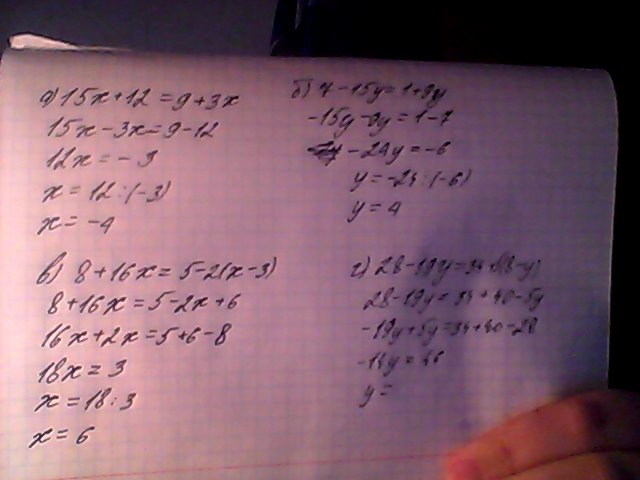 а) 15x+12=9+3x
15x-3x=9-12
12x=-3
x=12:(-3)
x=-4
б) 7-15y=1+9y
-15y-9y=1-7
-24y=-6
y=-24:(-6)
y=4
в) 8+16x=5-2(x-3)
8+16x=5-2x+6
16x+2x=5+6-8
18x=3
x=18:3
x=6
г) 28-19y=34+5(8-y)
28-19y=34+40-5y
-19y+5y=34+40-28
-14y=46
y=